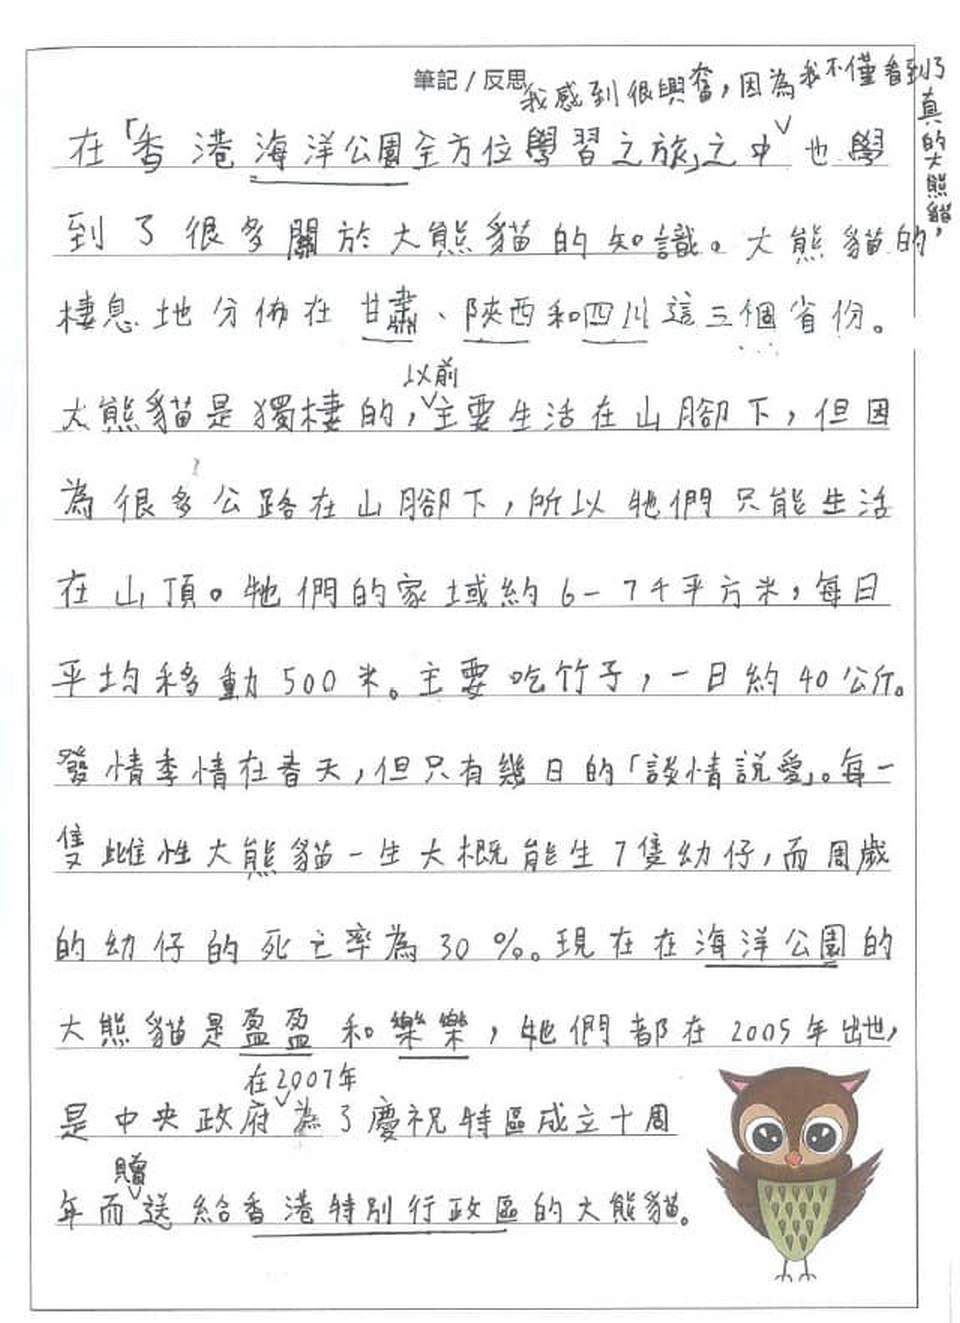 筆記/反思
我感到很興奮，因為我不僅看到了真的大熊貓，
在「香港海洋公園全方位學習之旅」之中也學
到了很多關於大熊貓的知識。大熊貓的
棲息地分佈在甘肅、陝西和四川這三個省份。
以前
大熊貓是獨棲的，主要生活在山腳下，但因
為很多公路在山腳下，所以牠們只能生活
在山頂。牠們的家域約6-7千平方米，每日
平均移動500米。主要吃竹子，一日約40公斤。
發情季情在春天，但只有幾日的「談情說愛」。每一
隻雌性大熊貓一生大概能生7隻幼仔，而周歲
的幼仔的死亡率為30%。現在在海洋公園的
大熊貓是盈盈和樂樂，牠們都在2005年出世，
在2007年
是中央政府為了慶祝特區成立十周
贈
年而送給香港特別行政區的大熊貓。